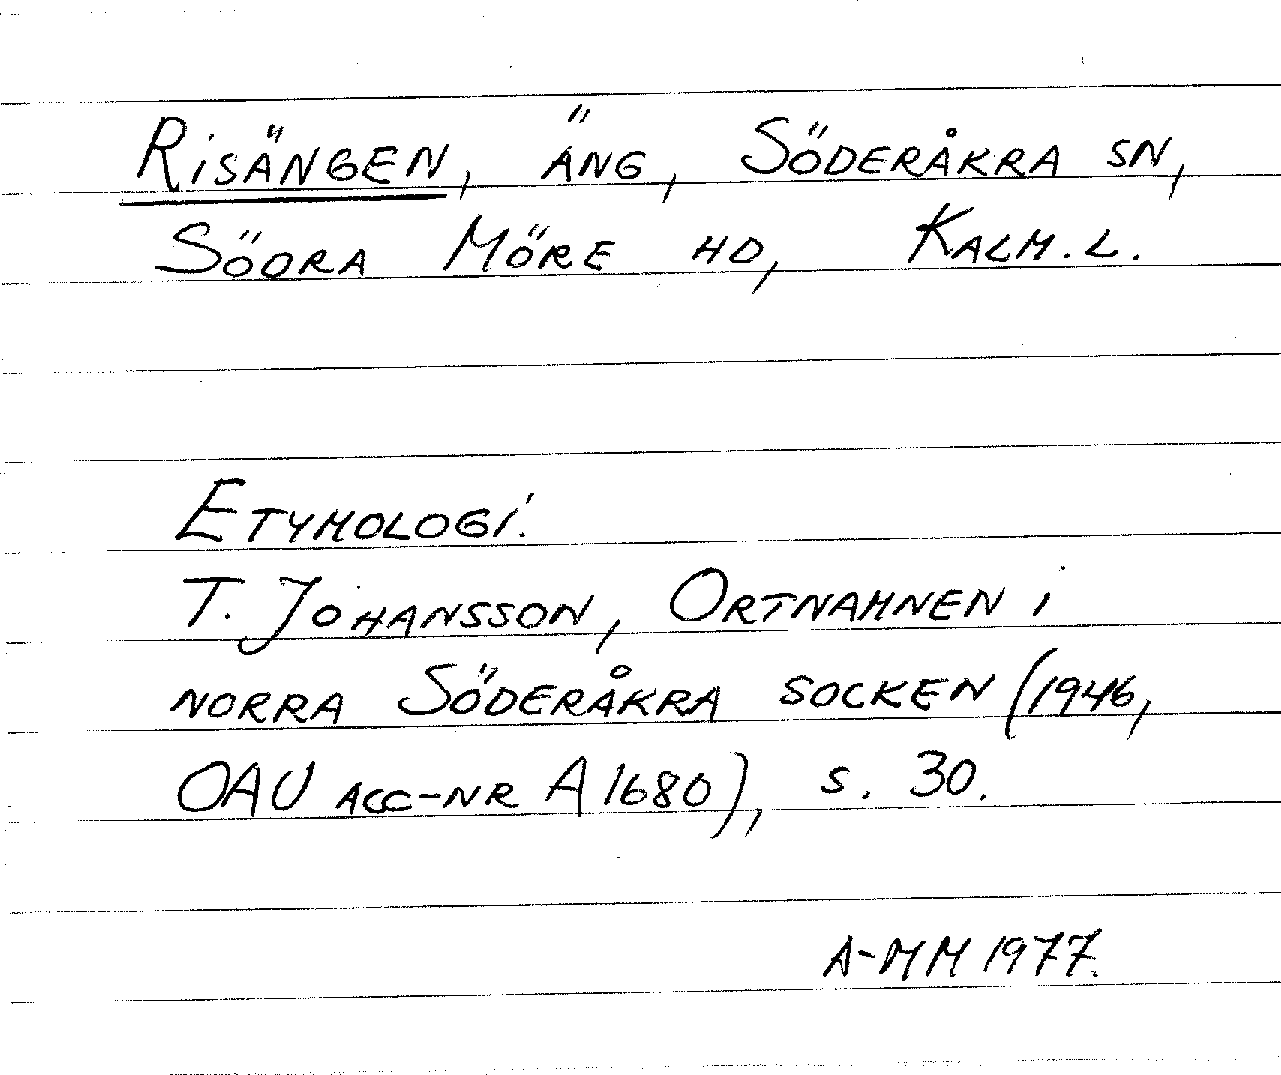 RISÄNGEN, ÄNG, SÖDERÅKRA SN,
SÖDRA MÖRE HD, KALM.L.
ETYMOLOGI.
T. JOHANSSON, ORTNAMNEN I
NORRA SÖDERÅKRA SOCKEN (1946,
OAU ACC-NR A 1680), S. 30.
A-MM 1977.